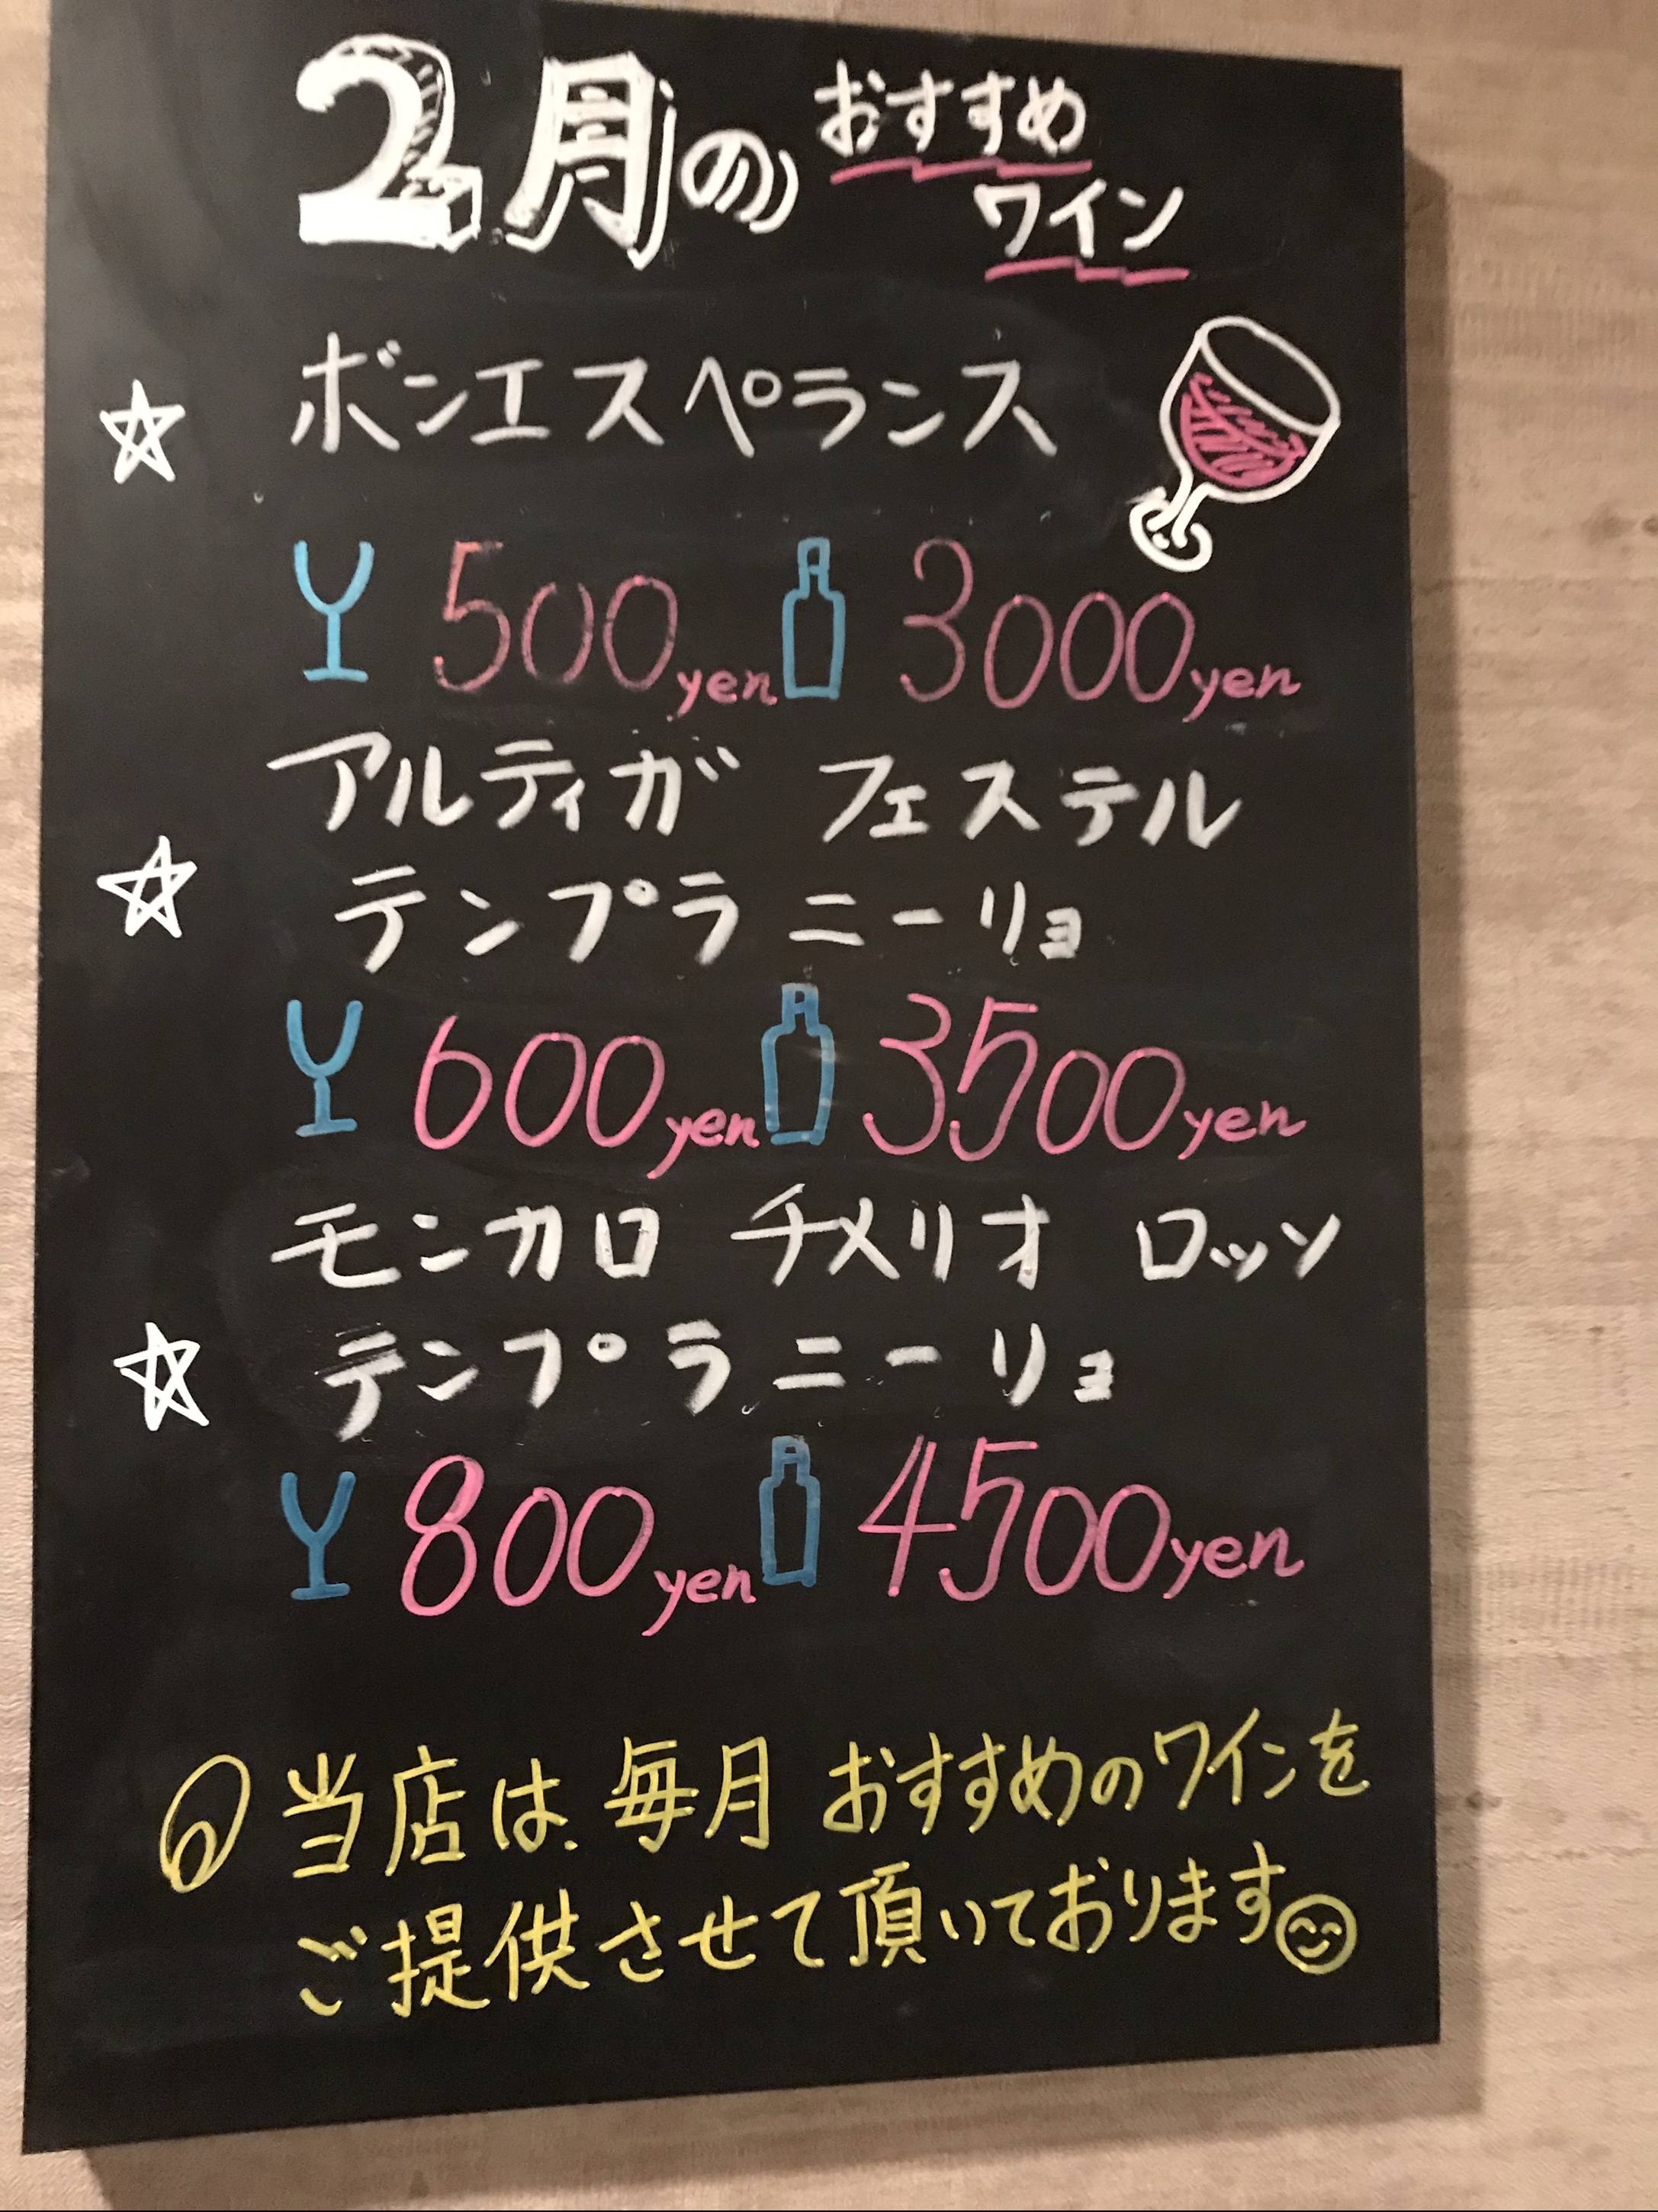 2月の おすすめ
ワイン
ボンエスペランス
500yen 3000yen
アルティガ フェステル
テンプラニーリョ
600yen 3500yen
モンカロ チメリオ ロッソ
テンプラニーリョ
800yen 4500yen
当店は、毎月おすすめのワインを
ご提供させて頂いております